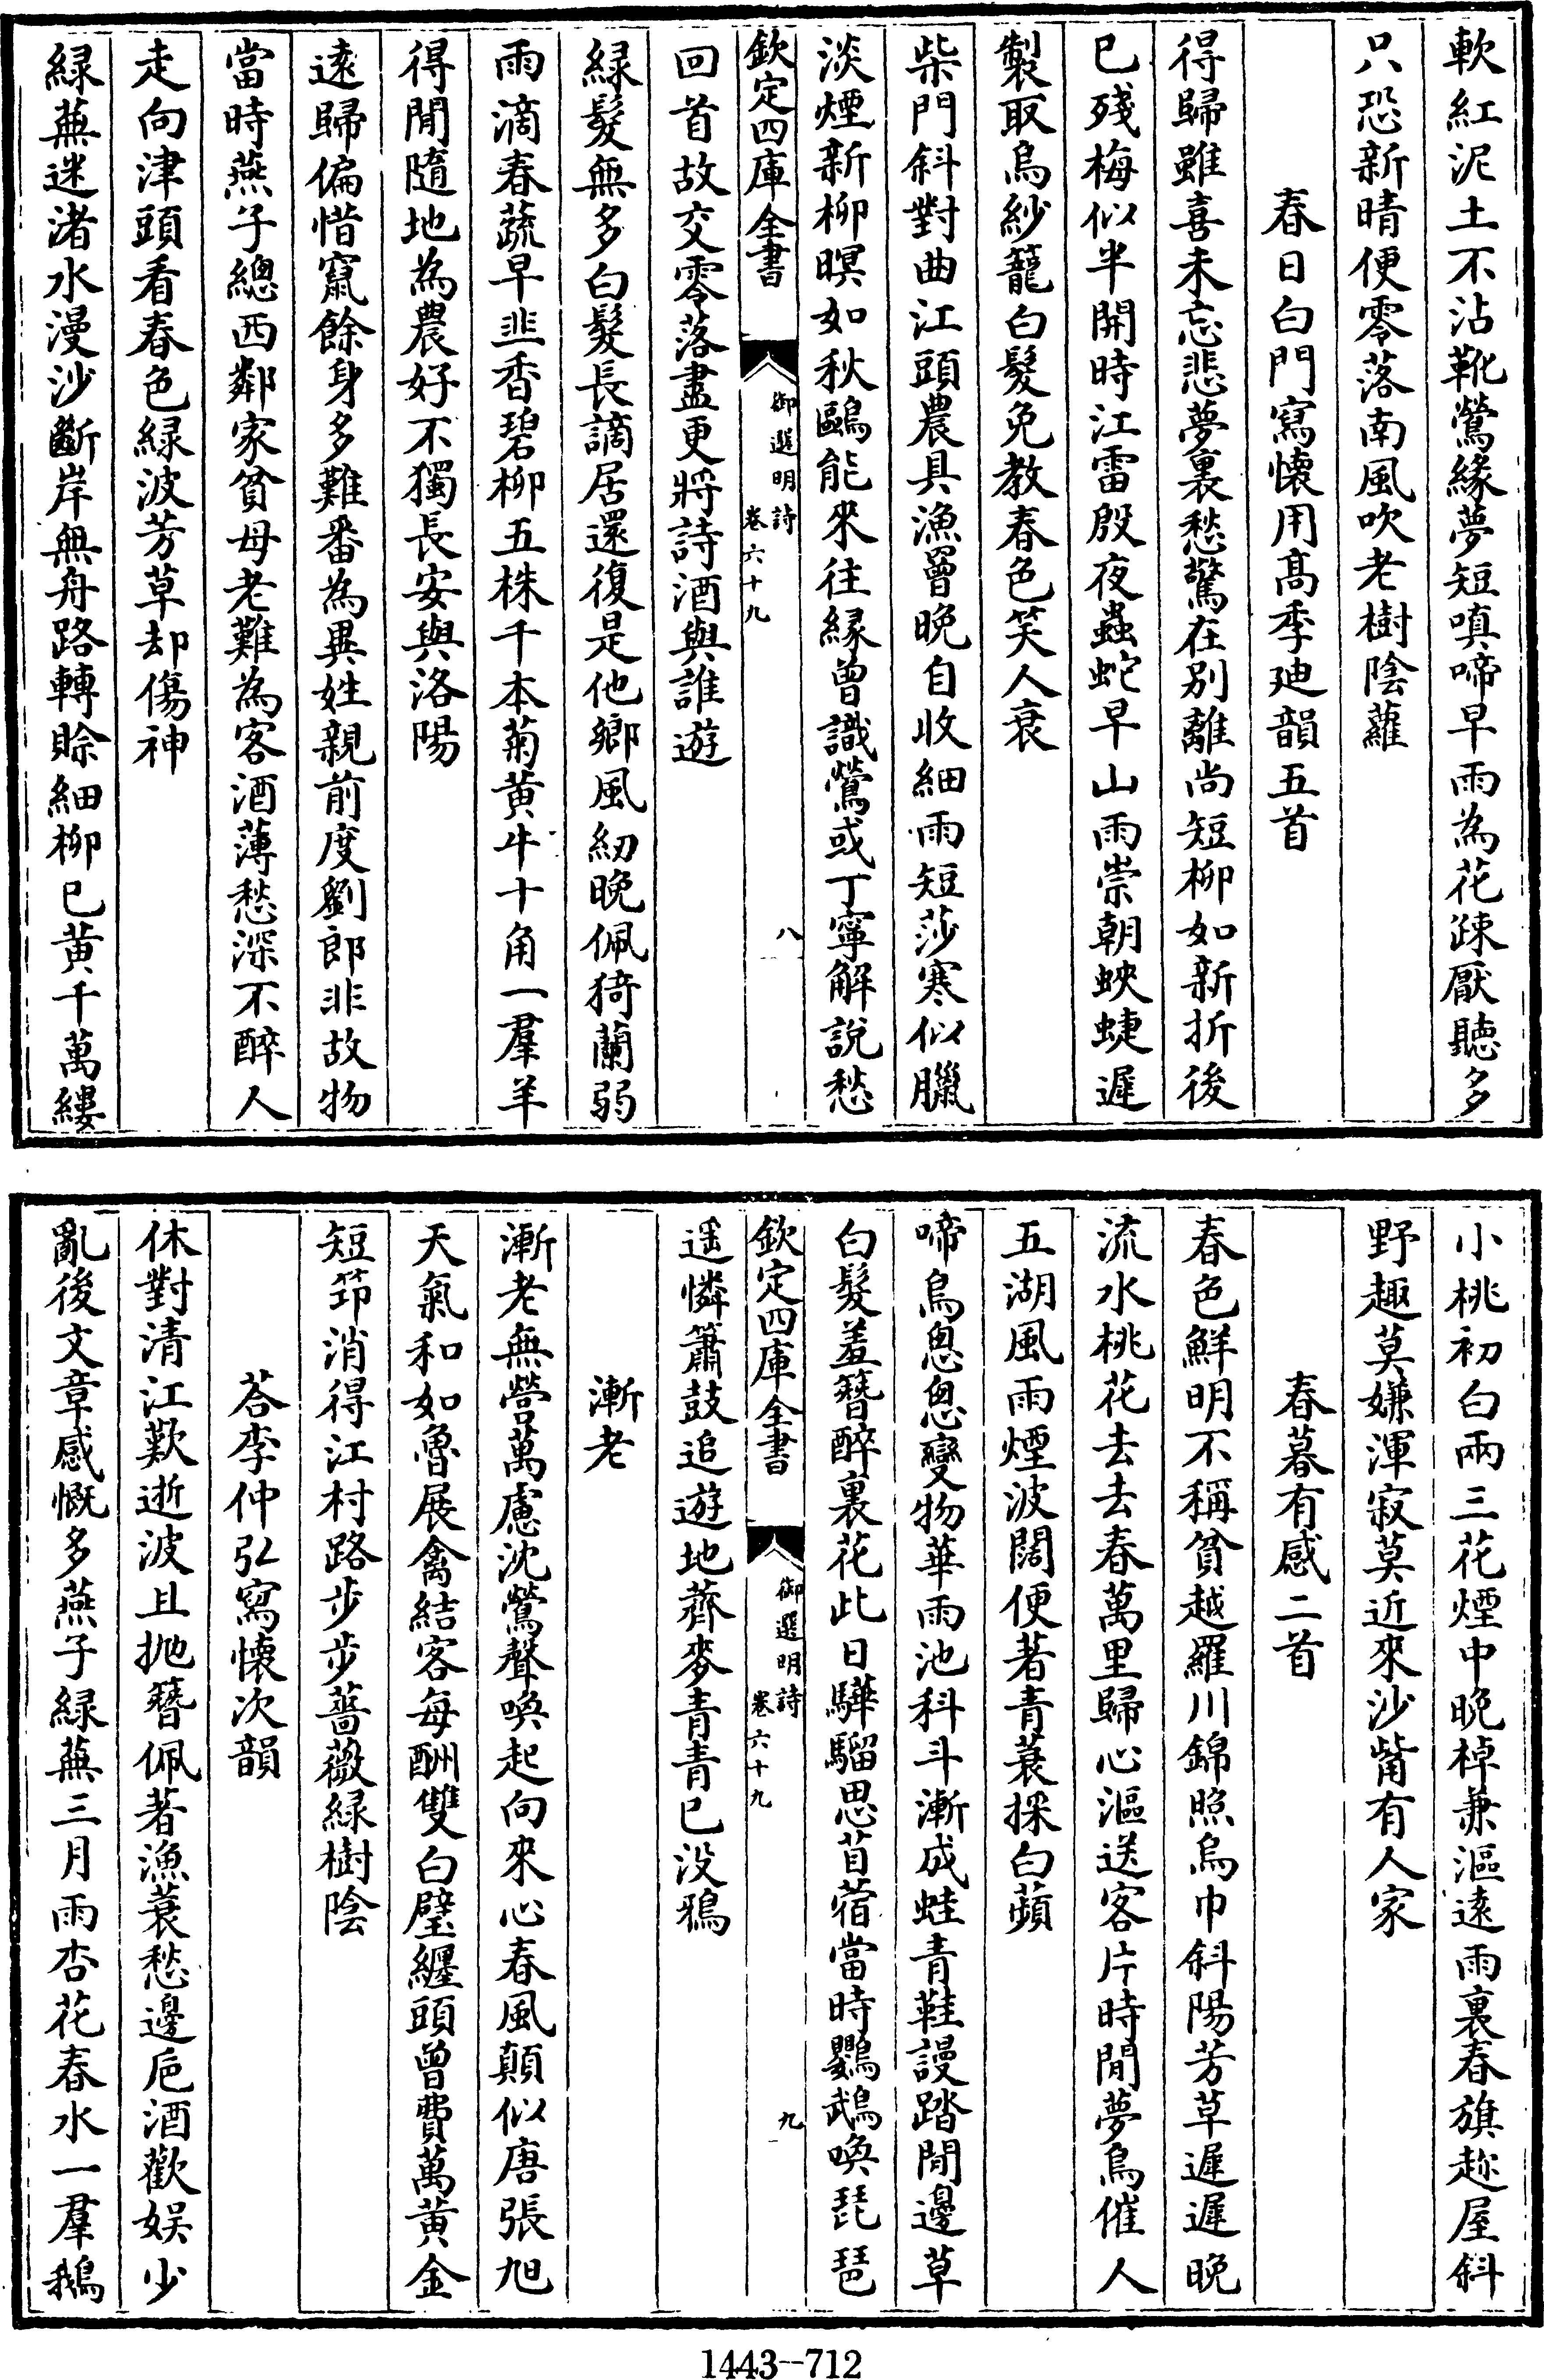 軟紅泥土不沾靴鶯縁夢短嗔啼早雨為花疎厭聽多
只恐新晴便零落南風吹老樹陰蘿
春日白門寫懐用髙季廸韻五首
得歸雖喜未忘悲夢裏愁驚在别離尚短柳如新折後
已殘梅似半開時江雷殷夜蟲蛇早山雨崇朝蛺蜨遲
製取烏紗籠白髮免教春色笑人衰
柴門斜對曲江頭農具漁罾晩自收細雨短莎寒似臘
淡煙新柳暝如秋鷗能來往縁曾識鶯或丁寧解說愁
欽定四庫全書
御選明詩
卷六十九
八
回首故交零落盡更將詩酒與誰遊
緑髮無多白髮長謫居還復是他鄉風紉晩佩猗蘭弱
雨滴春蔬早韭香碧柳五株千本菊黄牛十角一羣羊
得閒隨地為農好不獨長安與洛陽
逺歸偏惜竄餘身多難番為異姓親前度劉郎非故物
當時燕子總西鄰家貧母老難為客酒薄愁深不醉人
走向津頭看春色緑波芳草却傷神
緑蕪迷渚水漫沙斷岸無舟路轉賒細柳已黄千萬縷
小桃初白兩三花煙中晩棹兼漚逺雨裏春旗趂屋斜
野趣莫嫌渾寂莫近來沙觜有人家
春暮有感二首
春色鮮明不稱貧越羅川錦照烏巾斜陽芳草遲遲晩
流水桃花去去春萬里歸心漚送客片時閒夢鳥催人
五湖風雨煙波闊便著青蓑採白蘋
啼鳥怱怱變物華雨池科斗漸成蛙青鞋謾踏閒邊草
白髮羞簪醉裏花此日驊騮思苜蓿當時鸚鵡喚琵琶
欽定四庫全書
御選明詩
卷六十九
九
遥憐簫鼓追遊地薺麥青青已没鴉
漸老
漸老無營萬慮沈鶯聲喚起向來心春風顛似唐張旭
天氣和如魯展禽結客每酬雙白璧纒頭曾費萬黄金
短笻消得江村路步步薔薇緑樹陰
荅李仲弘寫懐次韻
休對清江歎逝波且抛簪佩著漁蓑愁邊巵酒歡娱少
亂後文章感慨多燕子緑蕪三月雨杏花春水一羣鵝
1443--712